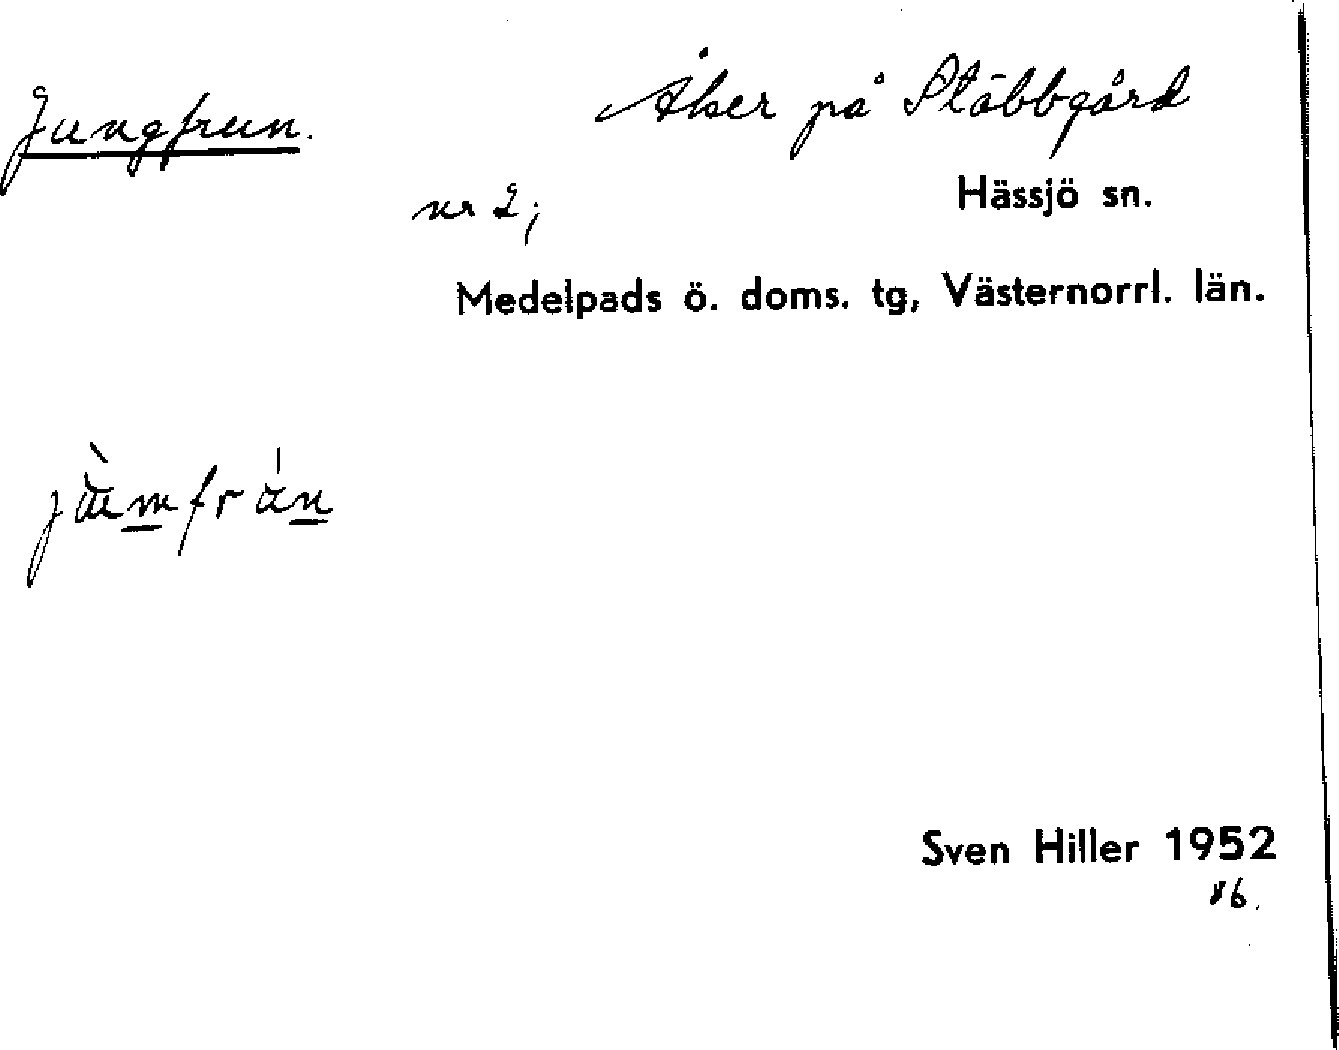 Jungfrun.
Åker på Stäbbgård
nr 2;
Hässjö sn.
Medelpads ö. doms. tg, Västernorrl. län.
Sven Hiller 1952